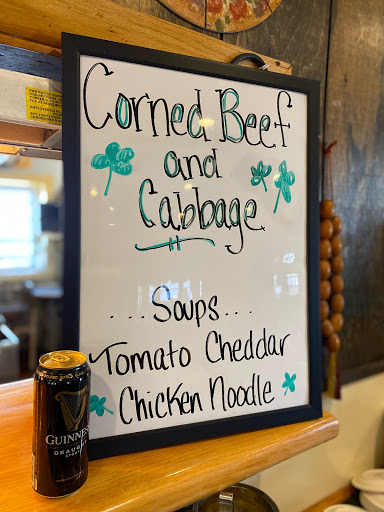 Corned Beef
and
Cabbage
...Soups...
Tomato Cheddar
Chicken Noodle
GUINNESS
DRAUGHT